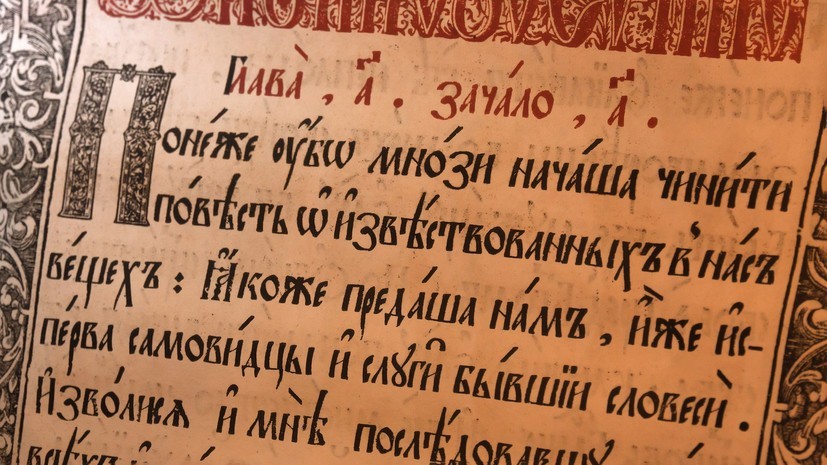 Глава̀ , а҃ . зача́ло , а҃ .
Поне́же ᲂу҆́бѡ мно́зи нача́ша чини́ти
по́вѣсть ѡ҆ и҆звѣ́ствованныхъ в̾ на́съ
ве́щехъ : Ꙗ҆́коже преда́ша на́мъ , и҆̀же и҆с-
пе́рва самови́дцы и҆ слꙋги̑ бы́вшїи словесѝ .
И҆зво́лисѧ и҆ мнѣ̀ послѣ́довавшꙋ